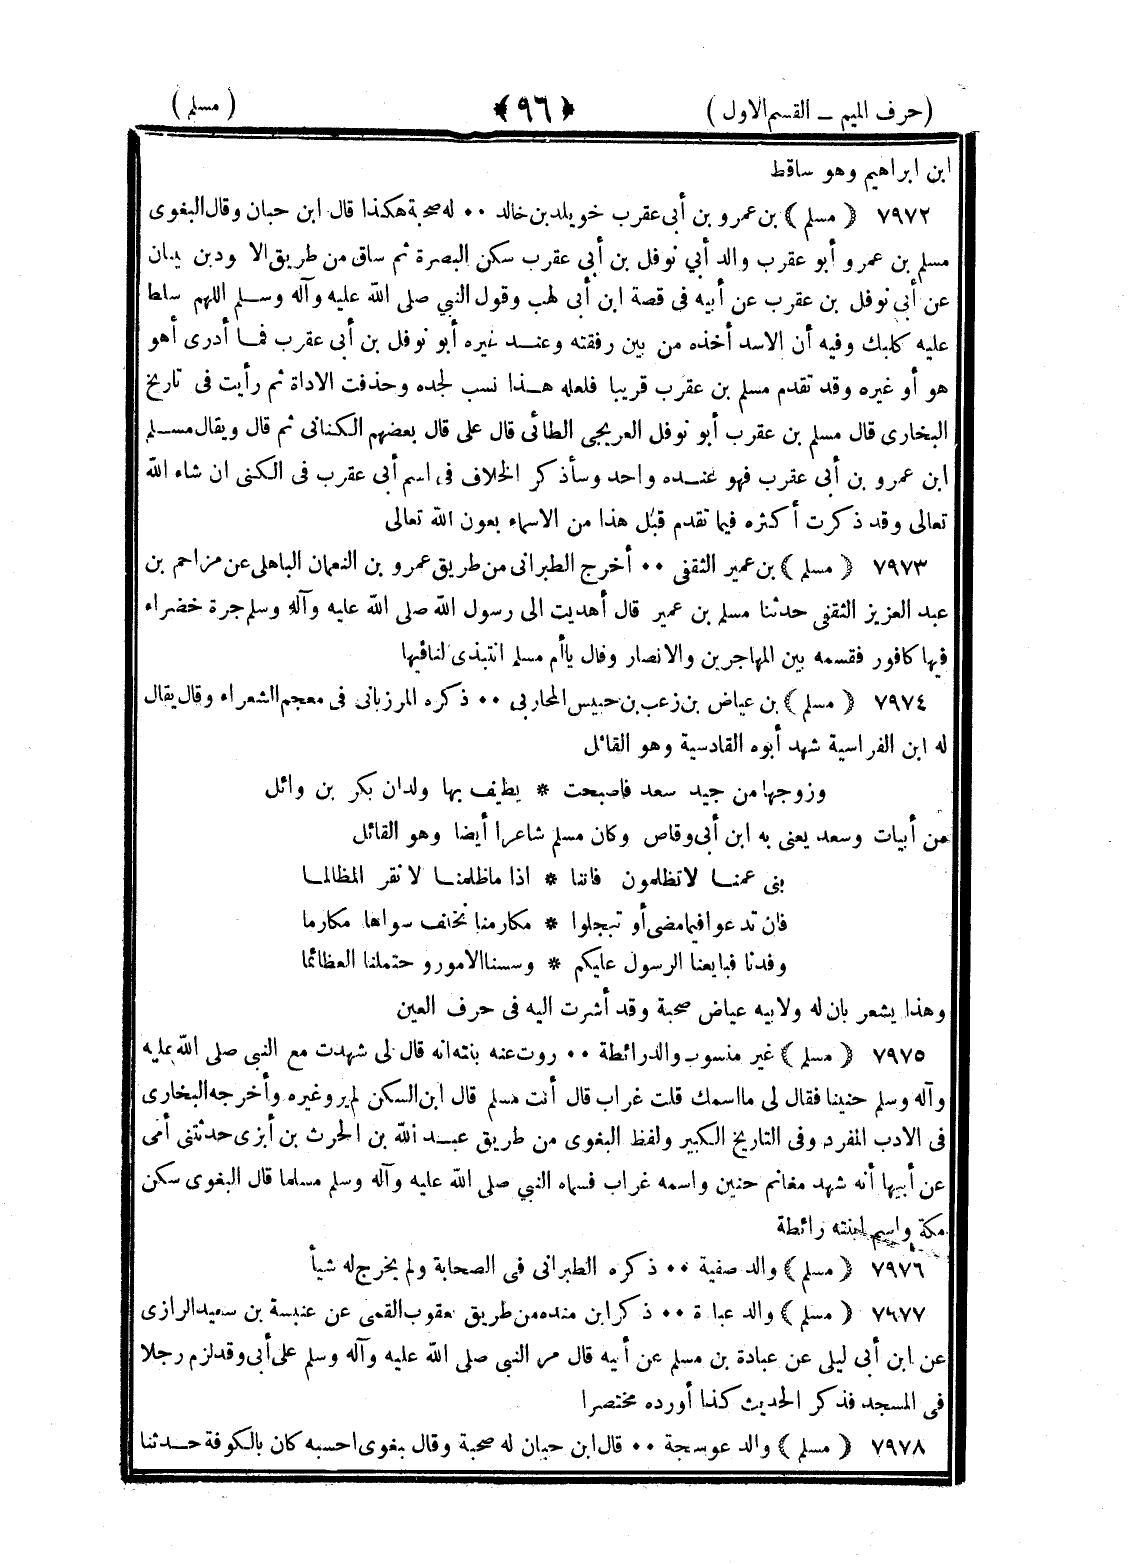 (حرف الميم ــ القسم الاول) ﴿٩٦﴾ (مسلم)
ابن ابراهيم وهو ساقط
٧٩٧٢ ﴿مسلم﴾ بن عمرو بن أبى عقرب خويلد بن خالد ٠٠ له صحبة هكذا قال ابن حبان وقال البغوى
مسلم بن عمرو أبو عقرب والد أبي نوفل بن أبى عقرب سكن البصرة ثم ساق من طريق الا ود بن يبان
عن أبى نوفل بن عقرب عن أبيه فى قصة ابن أبى لهب وقول النبي صلى الله عليه وآله وسلم اللهم سلط
عليه كلبك وفيه أن الاسد أخذه من بين رفقته وعند غيره أبو نوفل بن أبى عقرب فما أدرى أهو
هو أو غيره وقد تقدم مسلم بن عقرب قريبا فلعله هذا نسب لجده وحذفت الاداة ثم رأيت فى تاريخ
البخارى قال مسلم بن عقرب أبو نوفل العريجى الطائى قال على قال بعضهم الكنانى ثم قال ويقال مسلم
ابن عمرو بن أبى عقرب فهو عنده واحد وسأذكر الخلاف فى اسم أبى عقرب فى الكنى ان شاء الله
تعالى وقد ذكرت أكثره فيما تقدم قبل هذا من الاسماء بعون الله تعالى
٧٩٧٣ ﴿مسلم﴾ بن عمير الثقفى ٠٠ أخرج الطبرانى من طريق عمرو بن النعمان الباهلى عن مزاحم بن
عبد العزيز الثقفى حدثنا مسلم بن عمير قال أهديت الى رسول الله صلى الله عليه وآله وسلم جرة خضراء
فيها كافور فقسمه بين المهاجرين والانصار وقال ياأم مسلم انتبذى لنا فيها
٧٩٧٤ ﴿مسلم﴾ بن عياض بن زعب بن حبيس المحاربى ٠٠ ذكره المرزبانى فى معجم الشعراء وقال يقال
له ابن الفراسية شهد أبوه القادسية وهو القائل
وزوجها من جيد سعد فاصبحت * يطيف بها ولدان بكر بن وائل
من أبيات وسعد يعنى به ابن أبى وقاص وكان مسلم شاعرا أيضا وهو القائل
بنى عمنا لا تظلمون فاننا * اذا ما ظلمنا لا نقر المظالما
فان تدعوا فيما مضى أو تبجلوا * مكارمنا نخنف سواها مكارما
وفدنا فبايعنا الرسول عليكم * وسسنا الامور و حتملنا العظائما
وهذا يشعر بان له ولابيه عياض صحبة وقد أشرت اليه فى حرف العين
٧٩٧٥ ﴿مسلم﴾ غير منسوب والد رائطة ٠٠ روت عنه بنته انه قال لى شهدت مع النبي صلى الله عليه
وآله وسلم حنينا فقال لى ما اسمك قلت غراب قال أنت مسلم قال ابن السكن لم يرو غيره وأخرجه البخارى
فى الادب المفرد وفى التاريخ الكبير ولفظ البغوى من طريق عبد الله بن الحرث بن أبزى حدثتنى أمى
عن أبيها أنه شهد مغانم حنين واسمه غراب فسماه النبي صلى الله عليه وآله وسلم مسلما قال البغوى سكن
مكة واسم ابنته رائطة
٧٩٧٦ ﴿مسلم﴾ والد صفية ٠٠ ذكره الطبرانى فى الصحابة ولم يخرج له شيأ
٧٩٧٧ ﴿مسلم﴾ والد عبادة ٠٠ ذكر ابن منده من طريق يعقوب القمى عن عنبسة بن سعيد الرازى
عن ابن أبى ليلى عن عبادة بن مسلم عن أبيه قال مر النبي صلى الله عليه وآله وسلم على أبى وقد لزم رجلا
فى المسجد فذكر الحديث كذا أورده مختصرا
٧٩٧٨ ﴿مسلم﴾ والد عوسجة ٠٠ قال ابن حبان له صحبة وقال بغوى احسبه كان بالكوفة حدثنا